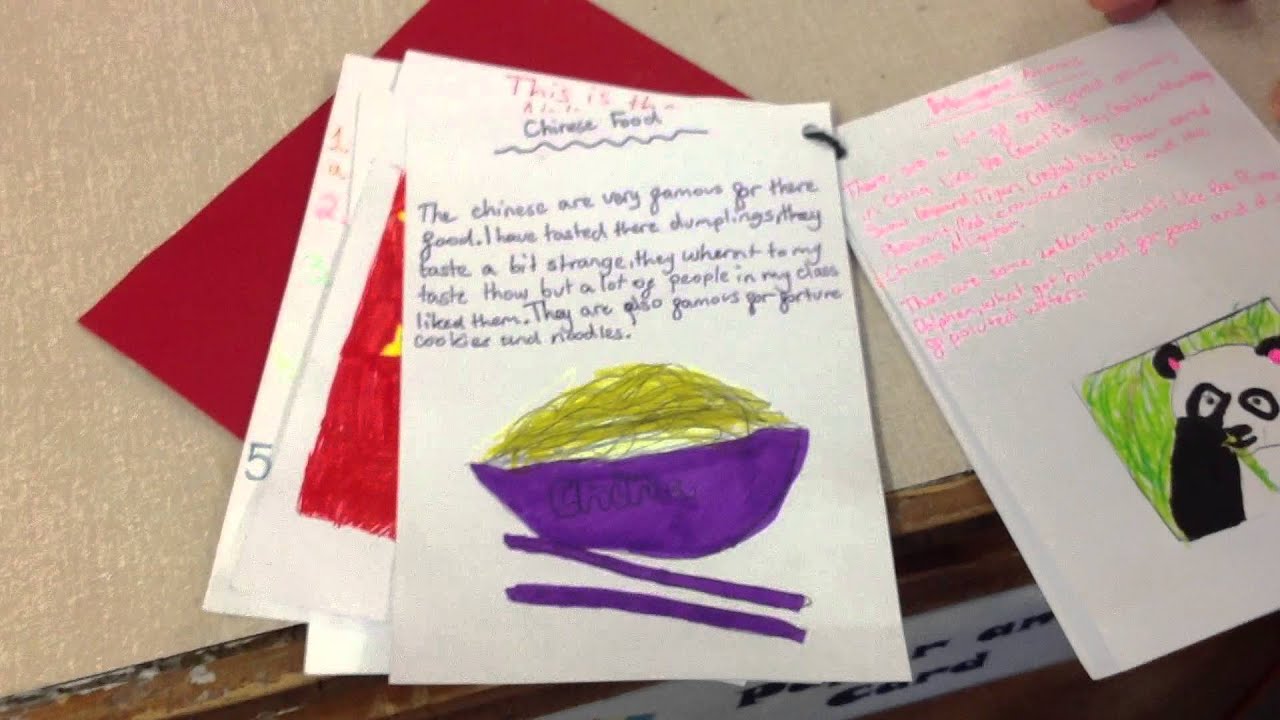 1.
2.
3
5
This is th
Chinese Food
The chinese are very gamous gor there
good. I have tasted there dumplings, they
taste a bit strange, they whernt to my
taste thow but a lot og people in my class
liked them. They are also gamous gor gorture
cookies and noodles.
China
Endangered Animals
There are a lot og endangered animals
in China like the Giant Panda, Golden Monkey
Snow leopard, Tiger, Crested Ibis, Brown eared
Pheasant, Red crowned crane and the
Chinese Alligator.
There are some extinct animals like the
Dolphen, what got hunted gor good and
og poluted water.
and
Card